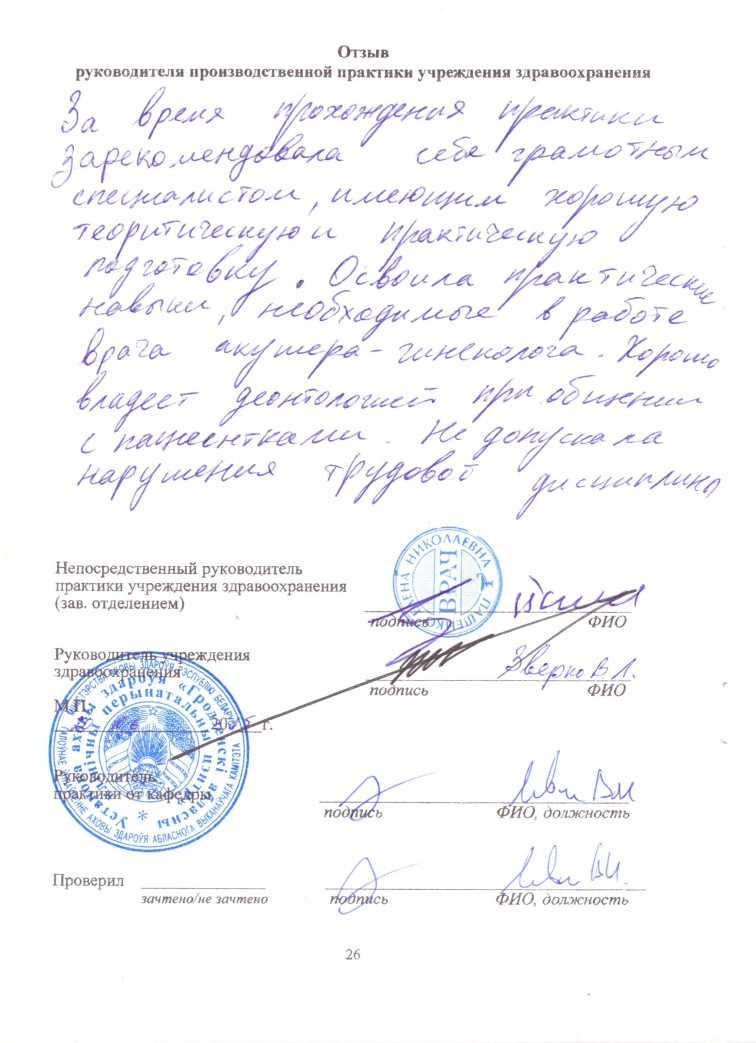 Отзыв
руководителя производственной практики учреждения здравоохранения
За время прохождения практики
зарекомендовала себя грамотным
специалистом, имеющим хорошую
теоритическую и практическую
подготовку. Освоила практические
навыки, необходимые в работе
врача акушера-гинеколога. Хорошо
владеет деонтологией при общении
с пациентками. Не допускала
нарушения трудовой дисциплины
Непосредственный руководитель
практики учреждения здравоохранения
(зав. отделением)
ЕЛЕНА НИКОЛАЕВНА
ВРАЧ
подпись ФИО
Руководитель учреждения
здравоохранения
Зверко В.Л.
подпись ФИО
М.П.
20 г.
Установа аховы здароўя «Гродзенскі абласны клінічны перынатальны цэнтр»
Руководитель
практики от кафедры
подпись ФИО, должность
Проверил
зачтено/не зачтено подпись ФИО, должность
26